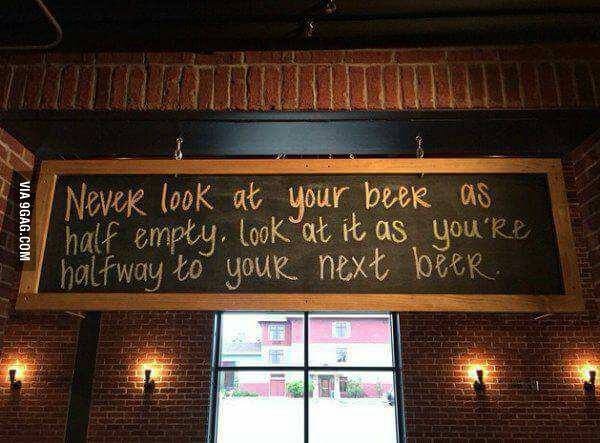 Never look at your beer as
half empty. look at it as you're
halfway to your next beer.
VIA 9GAG.COM